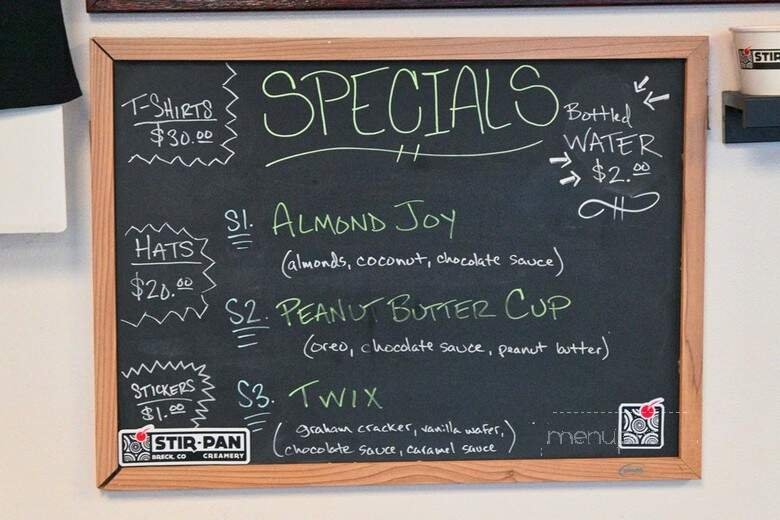 SPECIALS
T-SHIRTS
$30.00
Bottled
WATER
$2.00
HATS
$20.00
STICKERS
$1.00
S1. ALMOND JOY
(almonds, coconut, chocolate sauce)
S2. PEANUT BUTTER CUP
(oreo, chocolate sauce, peanut butter)
S3. TWIX
(graham cracker, vanilla wafer,
chocolate sauce, caramel sauce)
STIR-PAN
BRECK, CO CREAMERY
menu
STIR